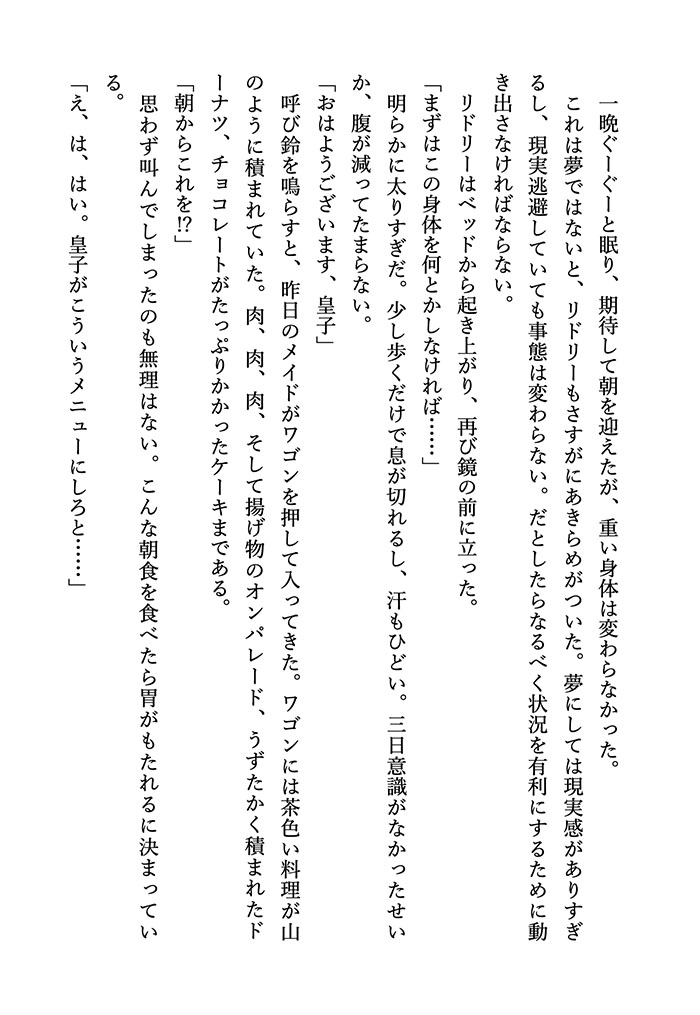 一晩ぐーぐーと眠り、期待して朝を迎えたが、重い身体は変わらなかった。
　これは夢ではないと、リドリーもさすがにあきらめがついた。夢にしては現実感がありすぎ
るし、現実逃避していても事態は変わらない。だとしたらなるべく状況を有利にするために動
き出さなければならない。
　リドリーはベッドから起き上がり、再び鏡の前に立った。
「まずはこの身体を何とかしなければ……」
　明らかに太りすぎだ。少し歩くだけで息が切れるし、汗もひどい。三日意識がなかったせい
か、腹が減ってたまらない。
「おはようございます、皇子」
　呼び鈴を鳴らすと、昨日のメイドがワゴンを押して入ってきた。ワゴンには茶色い料理が山
のように積まれていた。肉、肉、肉、そして揚げ物のオンパレード、うずたかく積まれたド
ーナツ、チョコレートがたっぷりかかったケーキまである。
「朝からこれを!?」
　思わず叫んでしまったのも無理はない。こんな朝食を食べたら胃がもたれるに決まってい
る。
「え、は、はい。皇子がこういうメニューにしろと……」